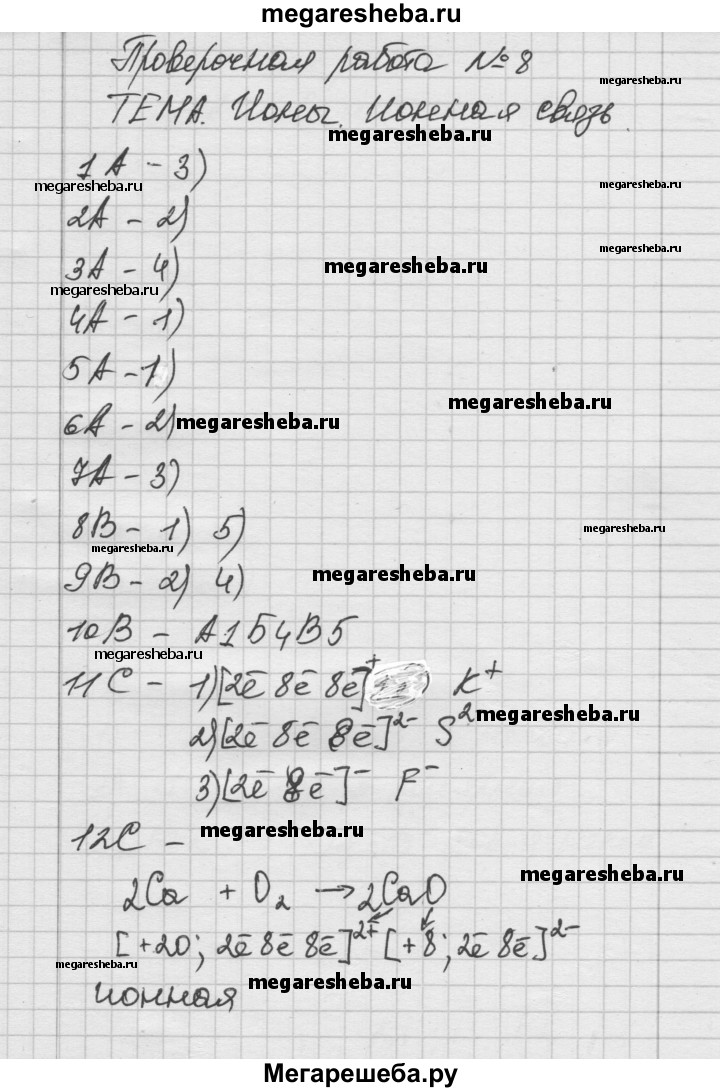 megaresheba.ru
Проверочная работа № 8
megaresheba.ru
ТЕМА. Ионы. Ионная связь
megaresheba.ru
1А - 3)
megaresheba.ru megaresheba.ru
2А - 2)
megaresheba.ru
3А - 4) megaresheba.ru
megaresheba.ru
4А - 1)
5А - 1)
megaresheba.ru
6А - 2) megaresheba.ru
7А - 3)
8В - 1) 5) megaresheba.ru
megaresheba.ru
9В - 2) 4) megaresheba.ru
10В - А1Б4В5
megaresheba.ru
11С - 1) [2ē 8ē 8ē]⁺ K⁺
2) [2ē 8ē 8ē]²⁻ S² megaresheba.ru
3) [2ē 8ē]⁻ F⁻
12С - megaresheba.ru
2Ca + O₂ → 2CaO megaresheba.ru
[+20; 2ē 8ē 8ē]²⁺ [+8; 2ē 8ē]²⁻
megaresheba.ru
ионная megaresheba.ru
Мегарешеба.ру